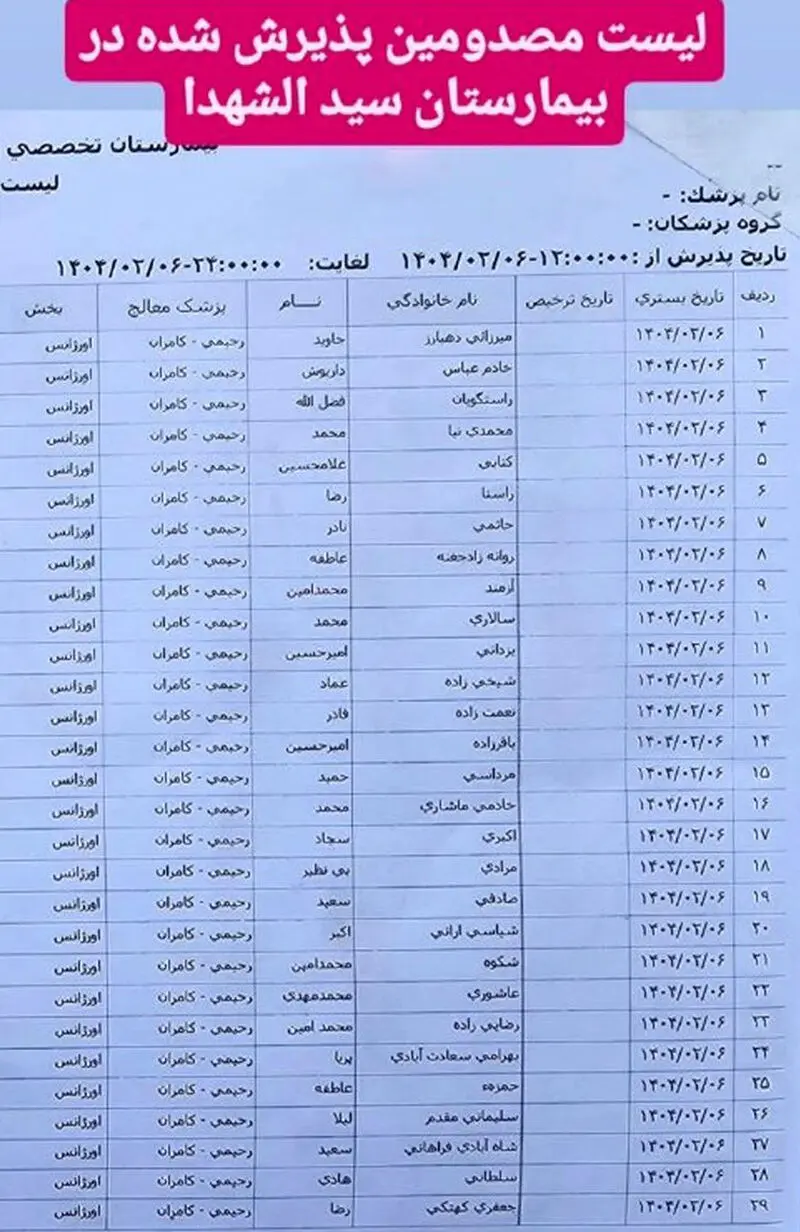 لیست مصدومین پذیرش شده در
بیمارستان سید الشهدا
بیمارستان تخصصي
ليست
--
نام پزشك: -
گروه پزشكان: -
تاريخ پذيرش از :۱۲:۰۰:۰۰-۱۴۰۴/۰۲/۰۶ لغايت: ۲۴:۰۰:۰۰-۱۴۰۴/۰۲/۰۶
رديف تاريخ بستري تاريخ ترخيص نام خانوادگي نــام پزشك معالج بخش
۱ ۱۴۰۴/۰۲/۰۶ ميرزائي دهبارز جاويد رحيمي - كامران اورژانس
۲ ۱۴۰۴/۰۲/۰۶ خادم عباس داريوش رحيمي - كامران اورژانس
۳ ۱۴۰۴/۰۲/۰۶ راستگويان فضل الله رحيمي - كامران اورژانس
۴ ۱۴۰۴/۰۲/۰۶ محمدي نيا محمد رحيمي - كامران اورژانس
۵ ۱۴۰۴/۰۲/۰۶ كتابي غلامحسين رحيمي - كامران اورژانس
۶ ۱۴۰۴/۰۲/۰۶ راستا رضا رحيمي - كامران اورژانس
۷ ۱۴۰۴/۰۲/۰۶ حاتمي نادر رحيمي - كامران اورژانس
۸ ۱۴۰۴/۰۲/۰۶ عاطفه رحيمي - كامران اورژانس
۹ ۱۴۰۴/۰۲/۰۶ آزمند محمدامين رحيمي - كامران اورژانس
۱۰ ۱۴۰۴/۰۲/۰۶ سالاري محمد رحيمي - كامران اورژانس
۱۱ ۱۴۰۴/۰۲/۰۶ يزداني اميرحسين رحيمي - كامران اورژانس
۱۲ ۱۴۰۴/۰۲/۰۶ شيخي زاده عماد رحيمي - كامران اورژانس
۱۳ ۱۴۰۴/۰۲/۰۶ نعمت زاده قادر رحيمي - كامران اورژانس
۱۴ ۱۴۰۴/۰۲/۰۶ باقرزاده اميرحسين رحيمي - كامران اورژانس
۱۵ ۱۴۰۴/۰۲/۰۶ مرداسي حميد رحيمي - كامران اورژانس
۱۶ ۱۴۰۴/۰۲/۰۶ خادمي ماشاري محمد رحيمي - كامران اورژانس
۱۷ ۱۴۰۴/۰۲/۰۶ اكبري سجاد رحيمي - كامران اورژانس
۱۸ ۱۴۰۴/۰۲/۰۶ مرادي بي نظير رحيمي - كامران اورژانس
۱۹ ۱۴۰۴/۰۲/۰۶ صادقي سعيد رحيمي - كامران اورژانس
۲۰ ۱۴۰۴/۰۲/۰۶ شياسي اراني اكبر رحيمي - كامران اورژانس
۲۱ ۱۴۰۴/۰۲/۰۶ شكوه محمدامين رحيمي - كامران اورژانس
۲۲ ۱۴۰۴/۰۲/۰۶ عاشوري محمدمهدي رحيمي - كامران اورژانس
۲۳ ۱۴۰۴/۰۲/۰۶ رضايي زاده محمد امين رحيمي - كامران اورژانس
۲۴ ۱۴۰۴/۰۲/۰۶ بهرامي سعادت آبادي پريا رحيمي - كامران اورژانس
۲۵ ۱۴۰۴/۰۲/۰۶ حمزه عاطفه رحيمي - كامران اورژانس
۲۶ ۱۴۰۴/۰۲/۰۶ سليماني مقدم ليلا رحيمي - كامران اورژانس
۲۷ ۱۴۰۴/۰۲/۰۶ شاه آبادي فراهاني سعيد رحيمي - كامران اورژانس
۲۸ ۱۴۰۴/۰۲/۰۶ سلطاني هادي رحيمي - كامران اورژانس
۲۹ ۱۴۰۴/۰۲/۰۶ جعفري كهتكي رضا رحيمي - كامران اورژانس